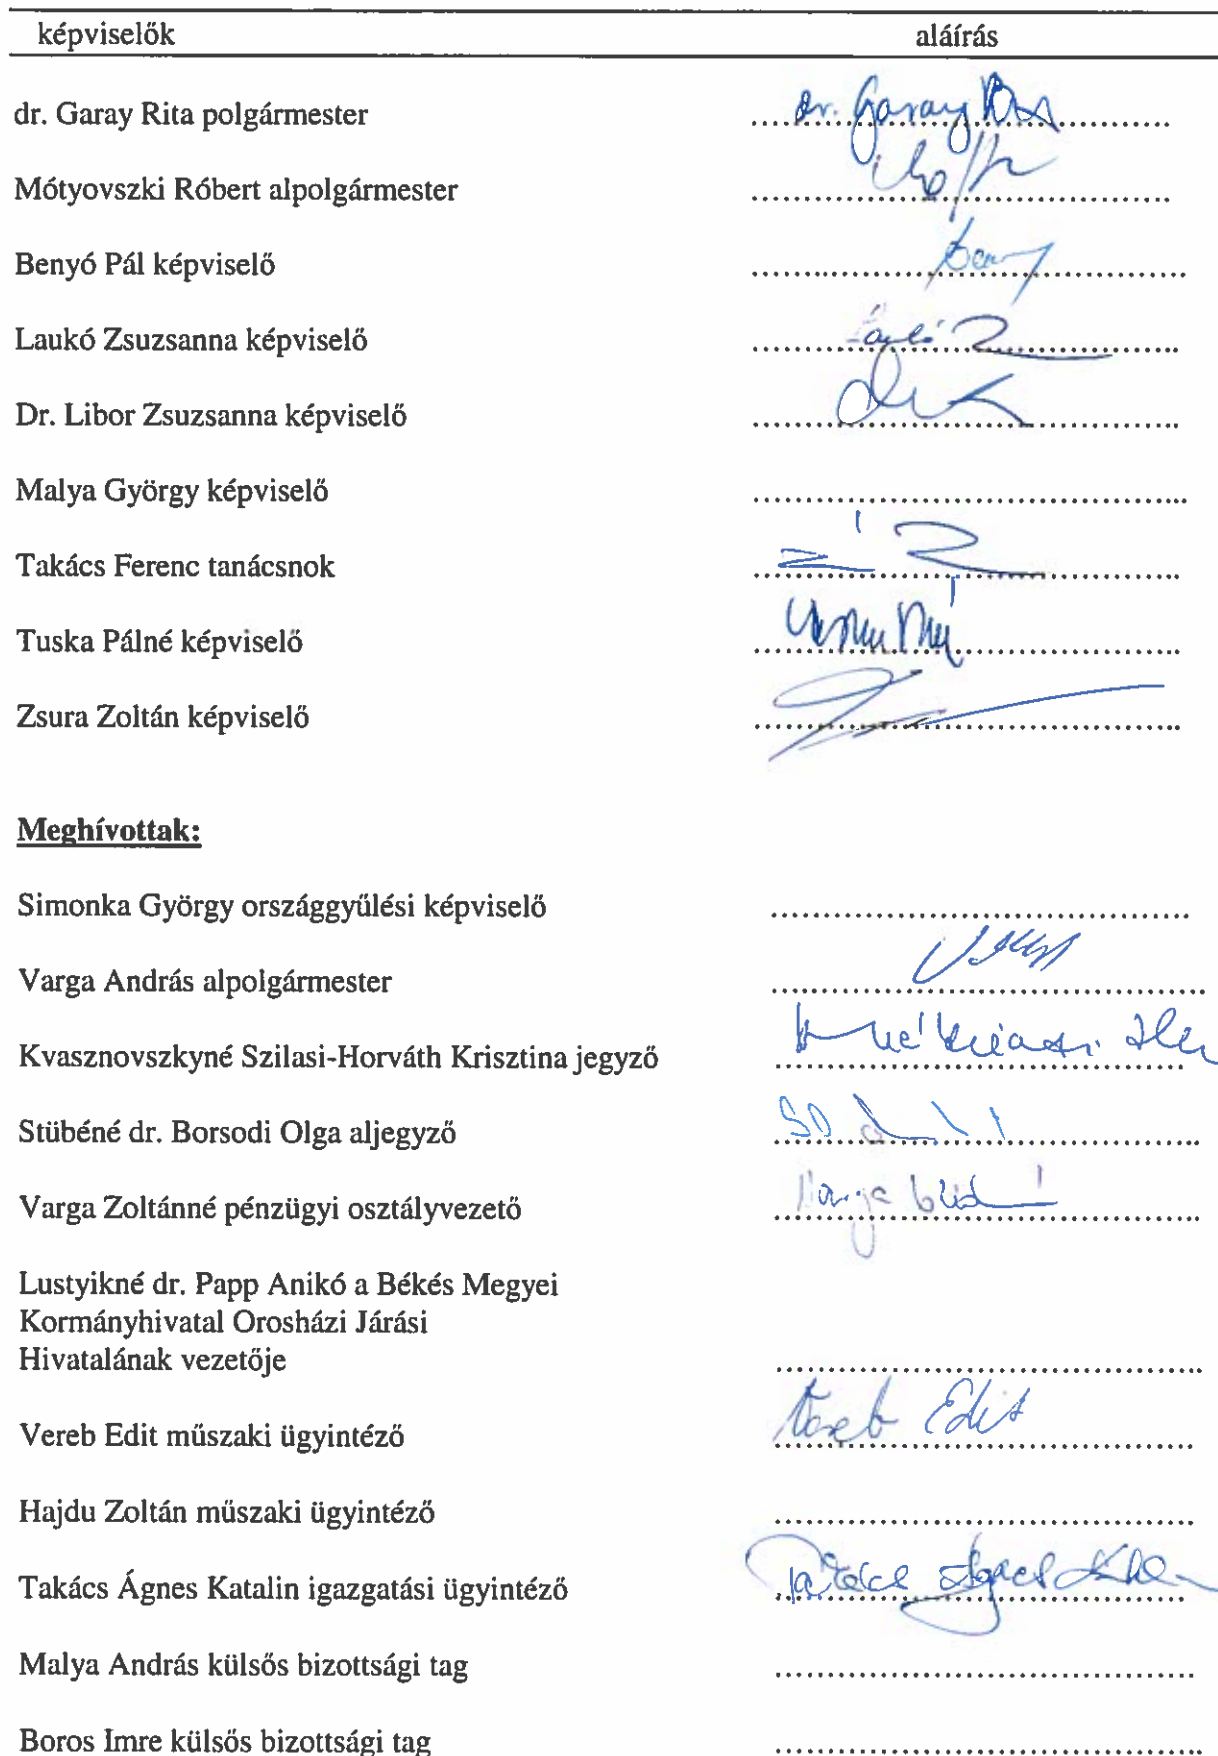 képviselők aláírás
dr. Garay Rita polgármester dr. Garay
Mótyovszki Róbert alpolgármester
Benyó Pál képviselő
Laukó Zsuzsanna képviselő
Dr. Libor Zsuzsanna képviselő
Malya György képviselő
Takács Ferenc tanácsnok
Tuska Pálné képviselő
Zsura Zoltán képviselő
Meghívottak:
Simonka György országgyűlési képviselő
Varga András alpolgármester
Kvasznovszkyné Szilasi-Horváth Krisztina jegyző
Stübéné dr. Borsodi Olga aljegyző
Varga Zoltánné pénzügyi osztályvezető
Lustyikné dr. Papp Anikó a Békés Megyei
Kormányhivatal Orosházi Járási
Hivatalának vezetője
Vereb Edit műszaki ügyintéző Vereb Edit
Hajdu Zoltán műszaki ügyintéző
Takács Ágnes Katalin igazgatási ügyintéző Takács Ágnes
Malya András külsős bizottsági tag
Boros Imre külsős bizottsági tag